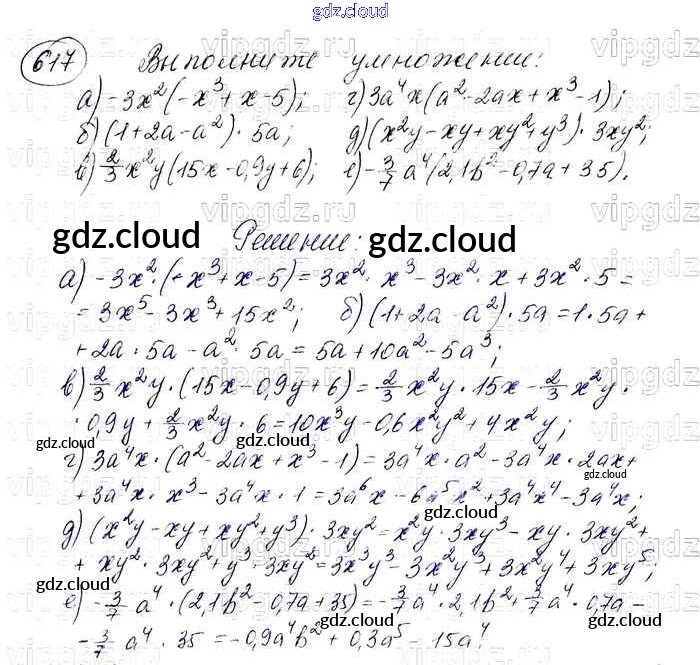 gdz.cloud
617 Выполните умножение:
а) -3x²(-x³+x-5); г) 3a⁴x(a²-2ax+x³-1);
б) (1+2a-a²)·5a; д) (x²y-xy+xy²+y³)·3xy²;
в) 2/3 x²y(15x-0,9y+6); е) -3/7 a⁴(2,1b²-0,7a+35).
gdz.cloud Решение: gdz.cloud
а) -3x²·(-x³+x-5)=3x²·x³-3x²·x+3x²·5=
=3x⁵-3x³+15x²; б) (1+2a-a²)·5a=1·5a+
+2a·5a-a²·5a=5a+10a²-5a³;
в) 2/3 x²y·(15x-0,9y+6)=2/3 x²y·15x-2/3 x²y·
·0,9y+2/3 x²y·6=10x³y-0,6x²y²+4x²y;
gdz.cloud gdz.cloud gdz.cloud
г) 3a⁴x·(a²-2ax+x³-1)=3a⁴x·a²-3a⁴x·2ax+
+3a⁴x·x³-3a⁴x·1=3a⁶x-6a⁵x²+3a⁴x⁴-3a⁴x;
gdz.cloud
д) (x²y-xy+xy²+y³)·3xy²=x²y·3xy³-xy·3xy²+
+xy²·3xy²+y³·3xy²=3x³y³-3x²y³+3x²y⁴+3xy⁵;
gdz.cloud gdz.cloud
е) -3/7 a⁴·(2,1b²-0,7a+35)=-3/7 a⁴·2,1b²+3/7 a⁴·0,7a-
-3/7 a⁴·35=-0,9a⁴b²+0,3a⁵-15a⁴.
gdz.cloud